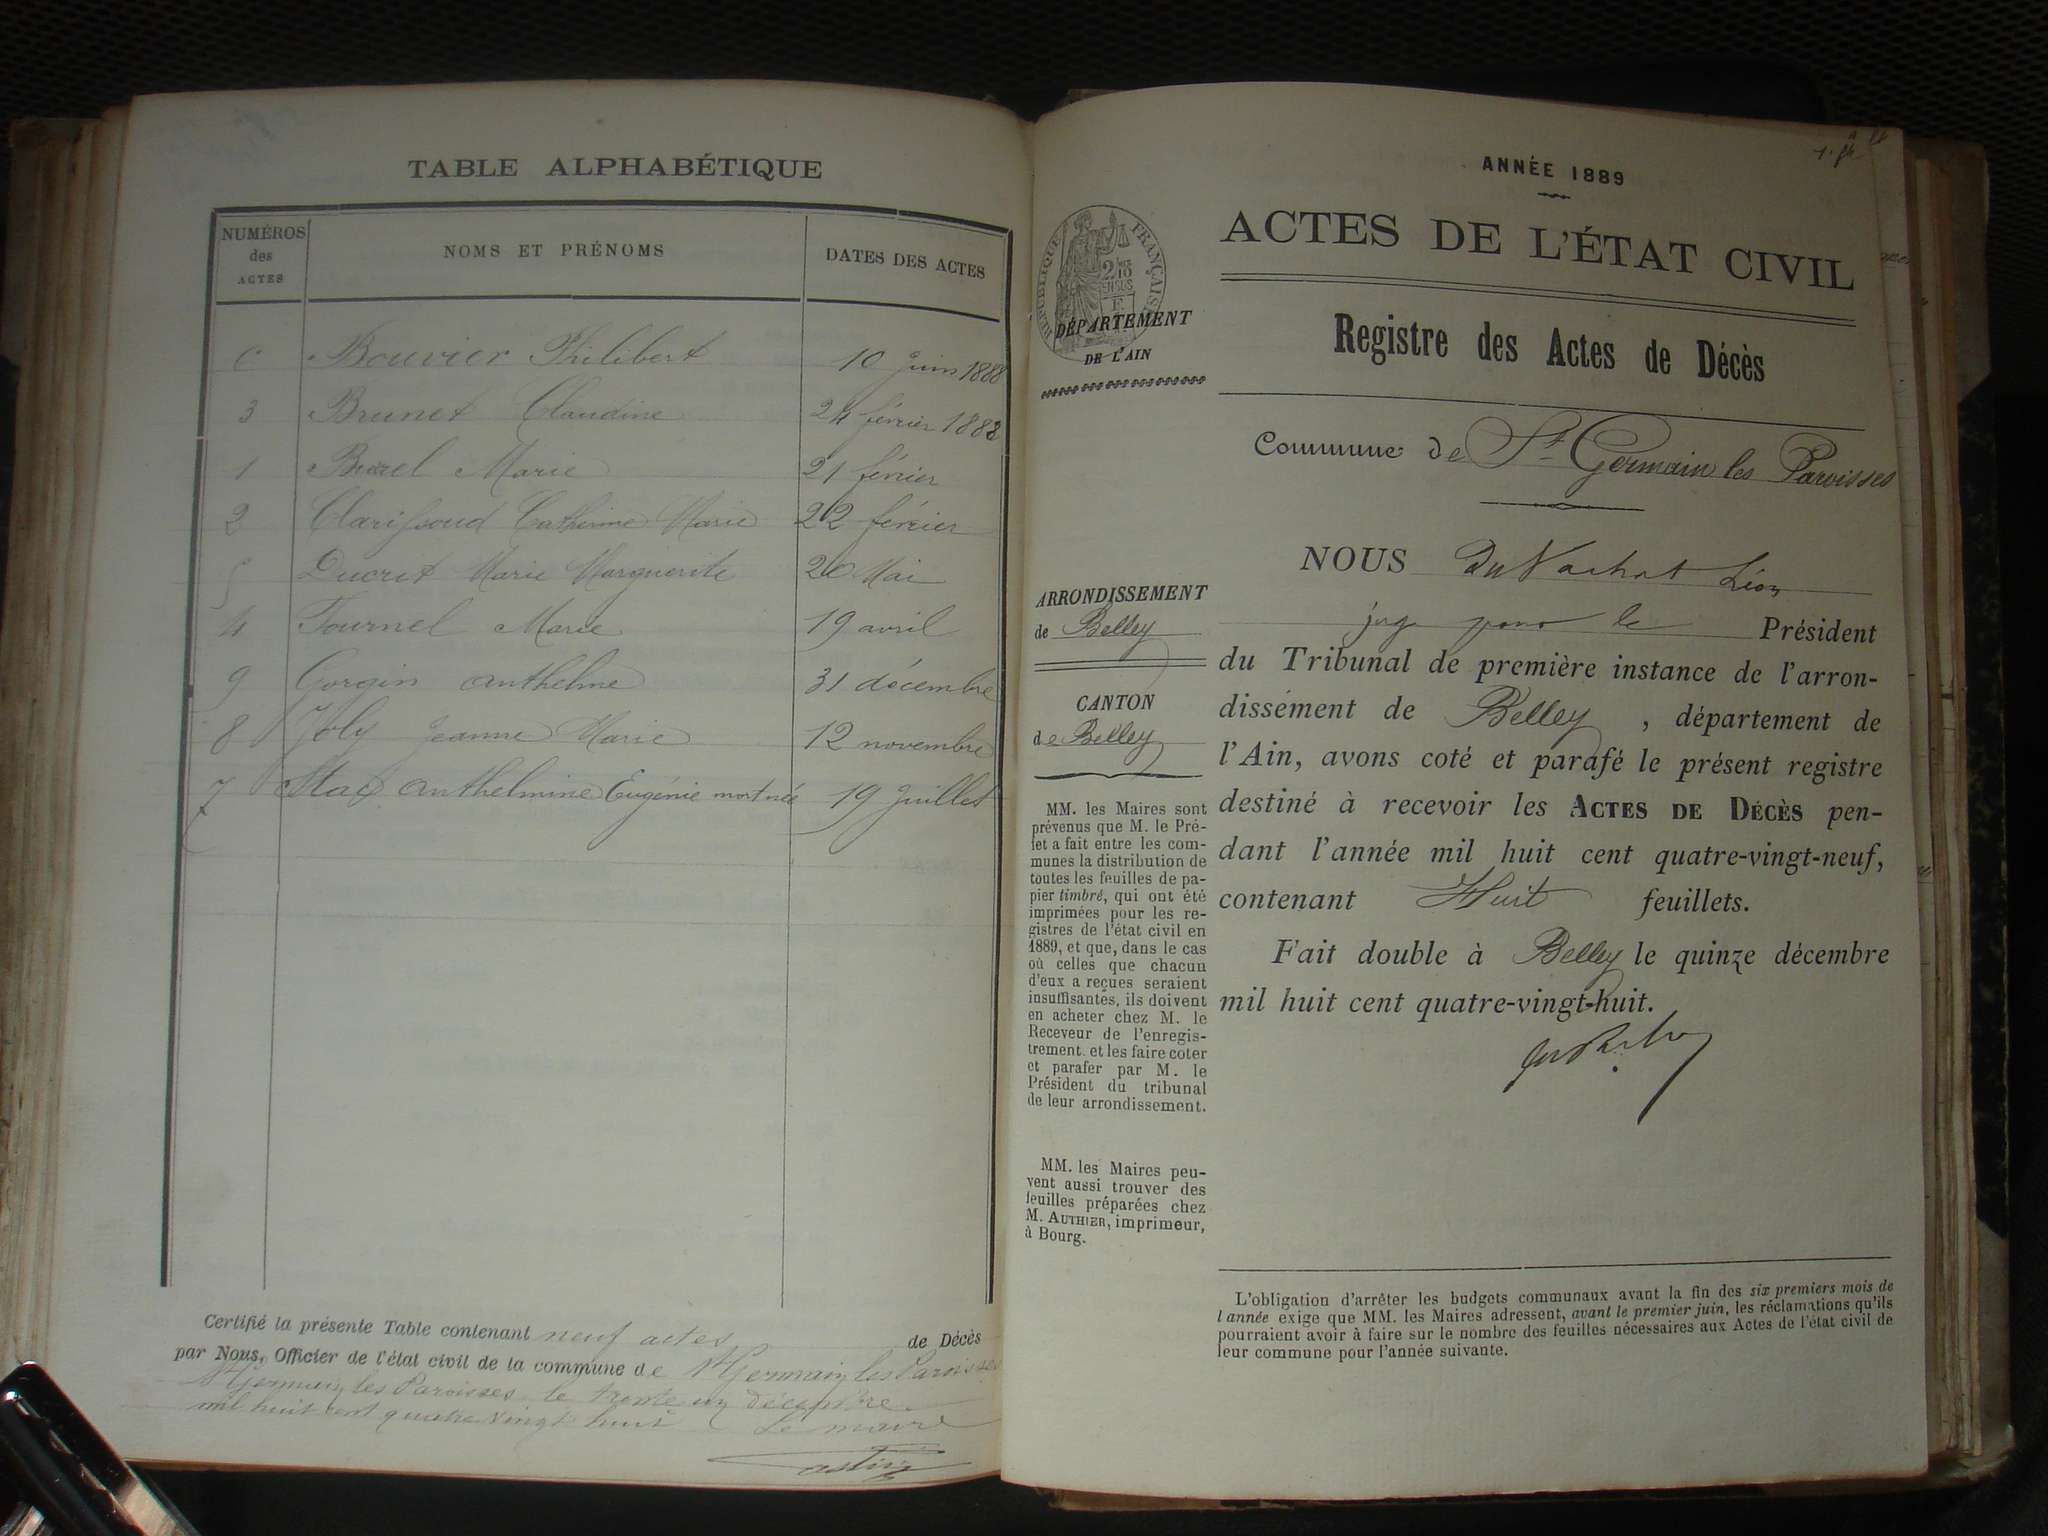 TABLE ALPHABÉTIQUE
NUMÉROS des ACTES NOMS ET PRÉNOMS DATES DES ACTES
6 Bouvier Philibert 10 Juin 1888
3 Brunet Claudine 24 février 1888
1 Burel Marie 21 février
2 Clarissoud Catherine Marie 22 février
5 Ducrit Marie Marguerite 20 Mai
4 Fournel Marie 19 avril
9 Gorgin anthelme 31 décembre
8 Joly Jeanne Marie 12 novembre
7 anthelmine Eugénie mort née 19 Juillet
Certifié la présente Table contenant neuf actes de Décès
par Nous, Officier de l'état civil de la commune de St Germain les Paroisses
St Germain les Paroisses le trente un Décembre
mil huit cent quatre vingt huit Le maire
ANNÉE 1889
ACTES DE L'ÉTAT CIVIL
RÉPUBLIQUE FRANÇAISE
2/10 EN SUS
DÉPARTEMENT
DE L'AIN
Registre des Actes de Décès
Commune de St Germain les Paroisses
ARRONDISSEMENT
de Belley
CANTON
de Belley
MM. les Maires sont
prévenus que M. le Pré-
fet a fait entre les com-
munes la distribution de
toutes les feuilles de pa-
pier timbré, qui ont été
imprimées pour les re-
gistres de l'état civil en
1889, et que, dans le cas
où celles que chacun
d'eux a reçues seraient
insuffisantes, ils doivent
en acheter chez M. le
Receveur de l'enregis-
trement. et les faire coter
et parafer par M. le
Président du tribunal
de leur arrondissement.
MM. les Maires peu-
vent aussi trouver des
feuilles préparées chez
M. AUTHIER, imprimeur,
à Bourg.
NOUS Du Vachat Léon
juge pour le Président
du Tribunal de première instance de l'arron-
dissement de Belley, département de
l'Ain, avons coté et parafé le présent registre
destiné à recevoir les ACTES DE DÉCÈS pen-
dant l'année mil huit cent quatre-vingt-neuf,
contenant Huit feuillets.
Fait double à Belley le quinze décembre
mil huit cent quatre-vingt-huit.
L'obligation d'arrêter les budgets communaux avant la fin des six premiers mois de
l'année exige que MM. les Maires adressent, avant le premier juin, les réclamations qu'ils
pourraient avoir à faire sur le nombre des feuilles nécessaires aux Actes de l'état civil de
leur commune pour l'année suivante.